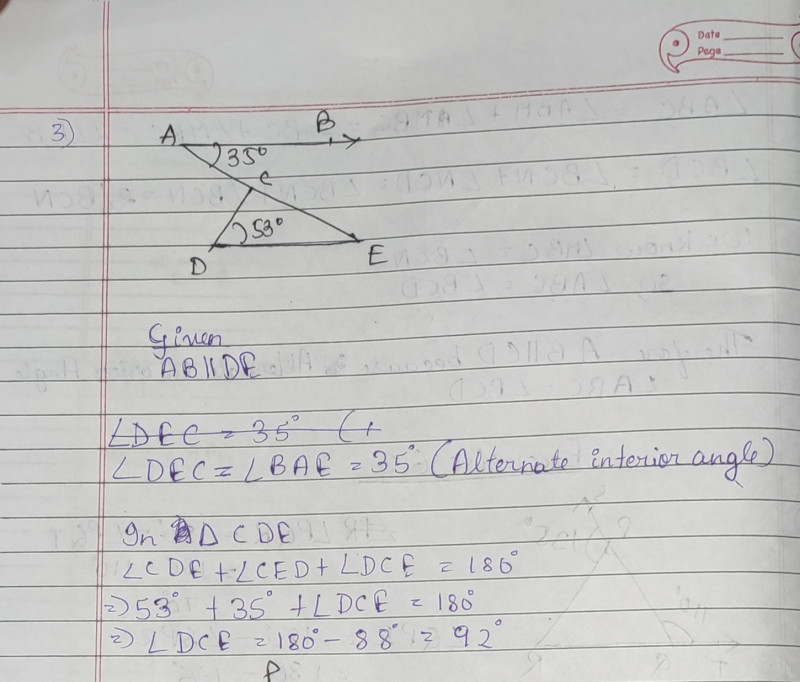 Date
Page
3)
A
B
35°
C
53°
D
E
Given
AB || DE
∠DEC = 35° (
∠DEC = ∠BAE = 35° (Alternate interior angle)
In Δ CDE
∠CDE + ∠CED + ∠DCE = 180°
=> 53° + 35° + ∠DCE = 180°
=> ∠DCE = 180° - 88° = 92°